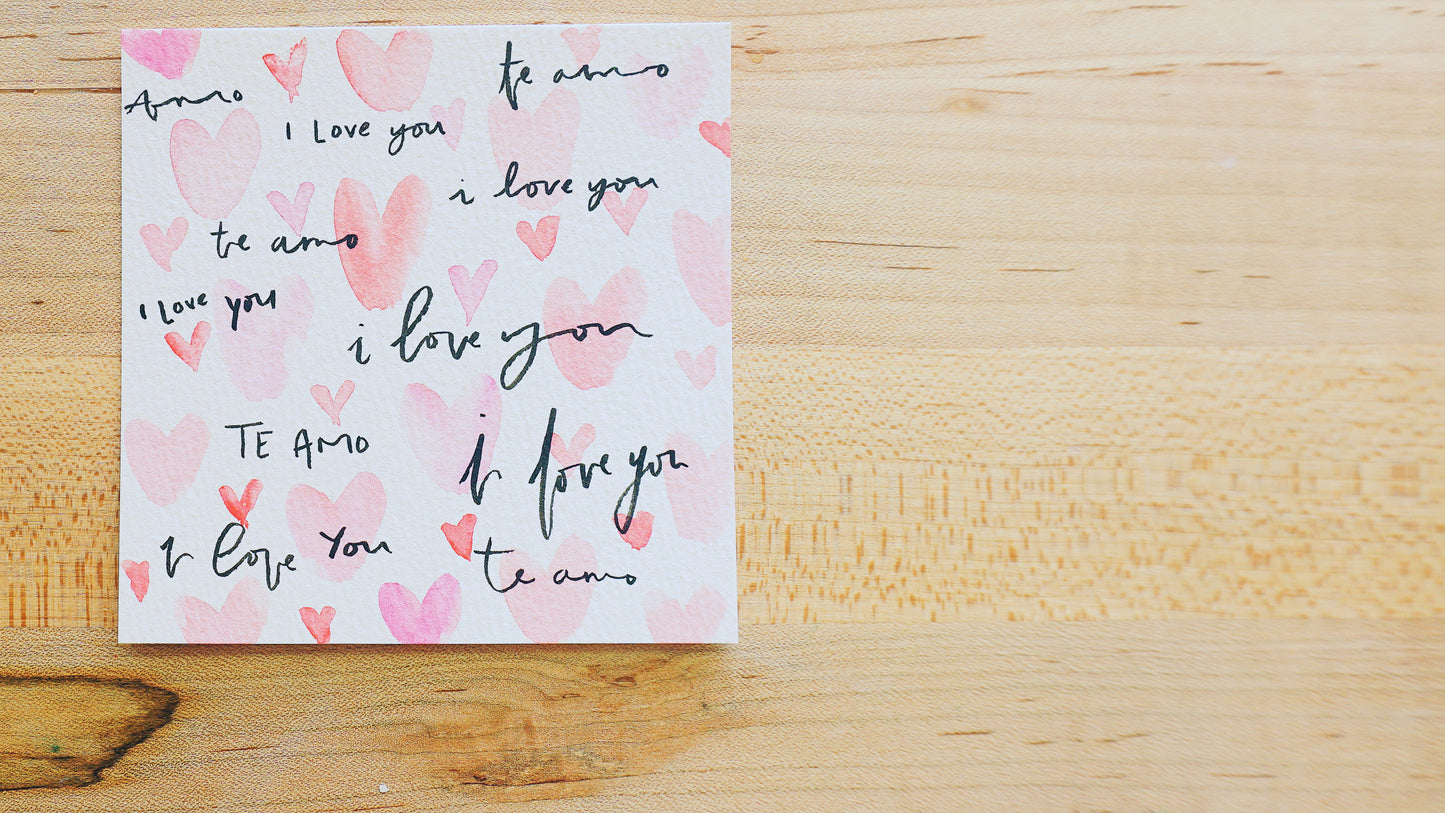 te amo
Amo
I Love you
i love you
te amo
I Love you
i love you
TE AMO
I love you
I love You
te amo